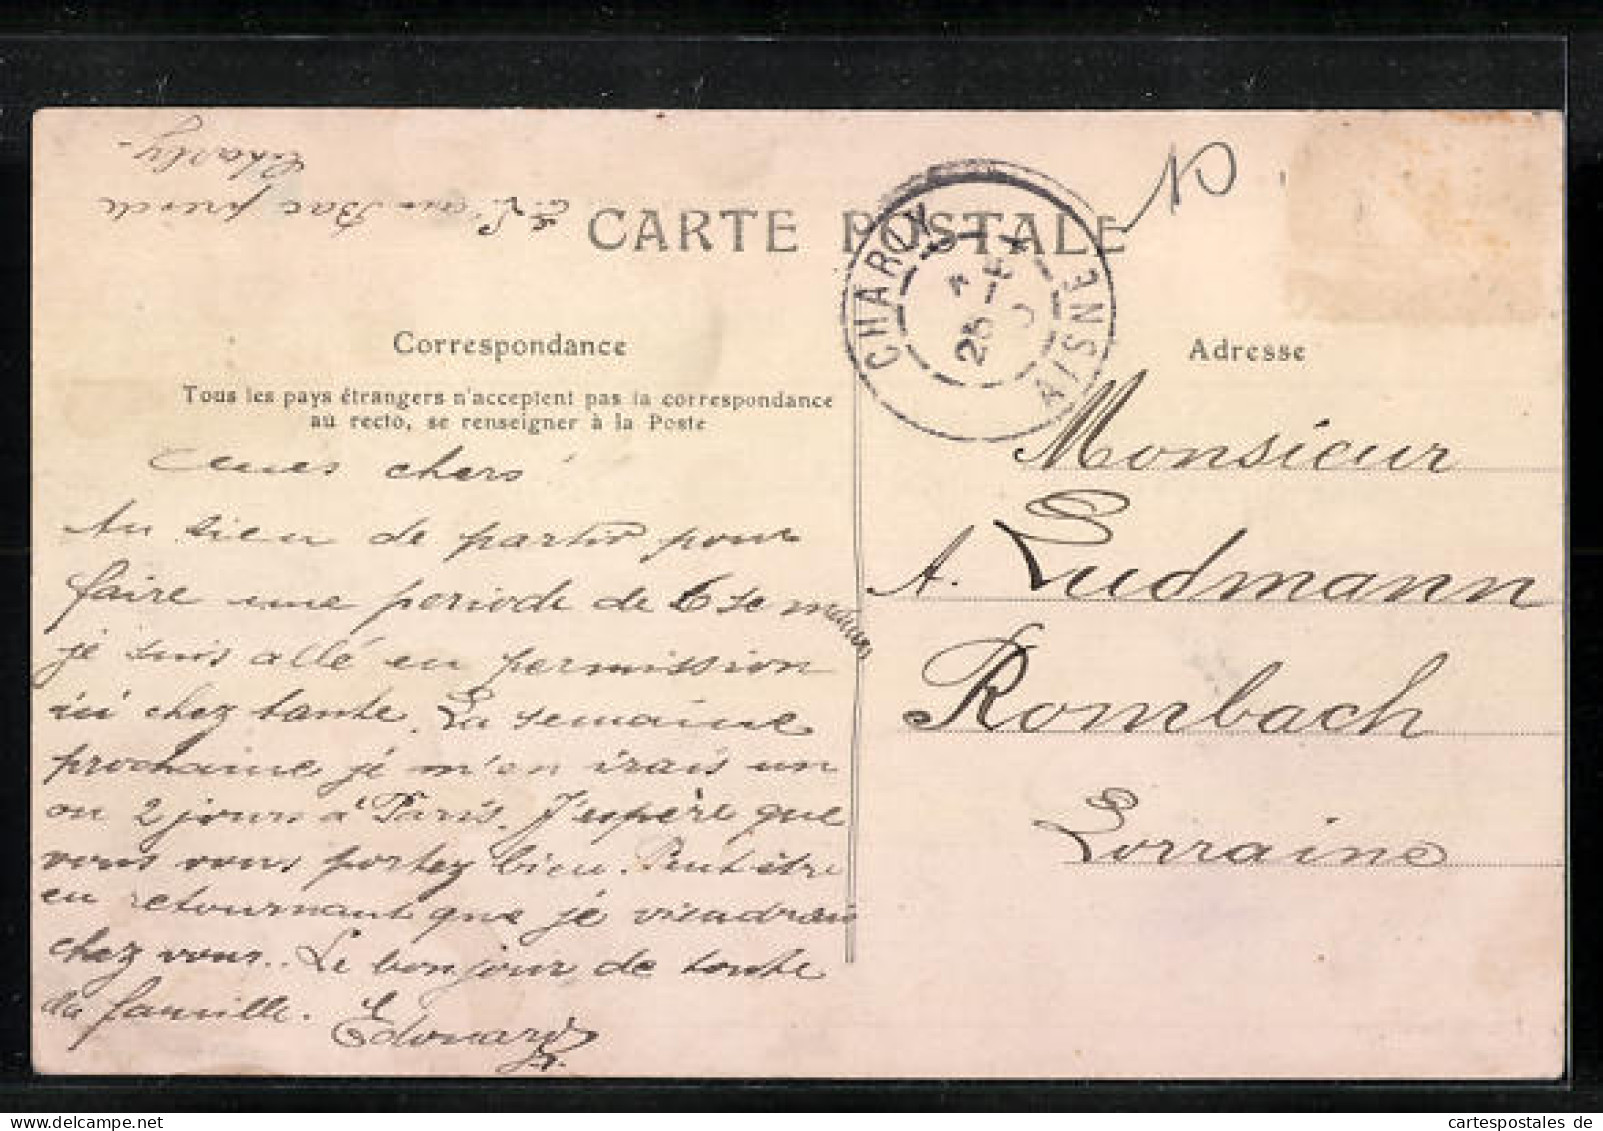 E. L. au Bac près de
Charly.
CARTE POSTALE
CHARLY
AISNE
25
Correspondance
Tous les pays étrangers n'acceptent pas la correspondance
au recto, se renseigner à la Poste
chers!
Au lieu de partir pour
faire une periode de 6 semaines
je suis allé en permission
ici chez tante. La semaine
prochaine je m'en irais un
ou 2 jours à Paris. J'espère que
vous vous portez bien. Peut être
en retournant que je viendrai
chez vous. Le bonjour de toute
la famille.
Edouard
Adresse
Monsieur
A. Ludmann
Rombach
Lorraine
cartespostales de